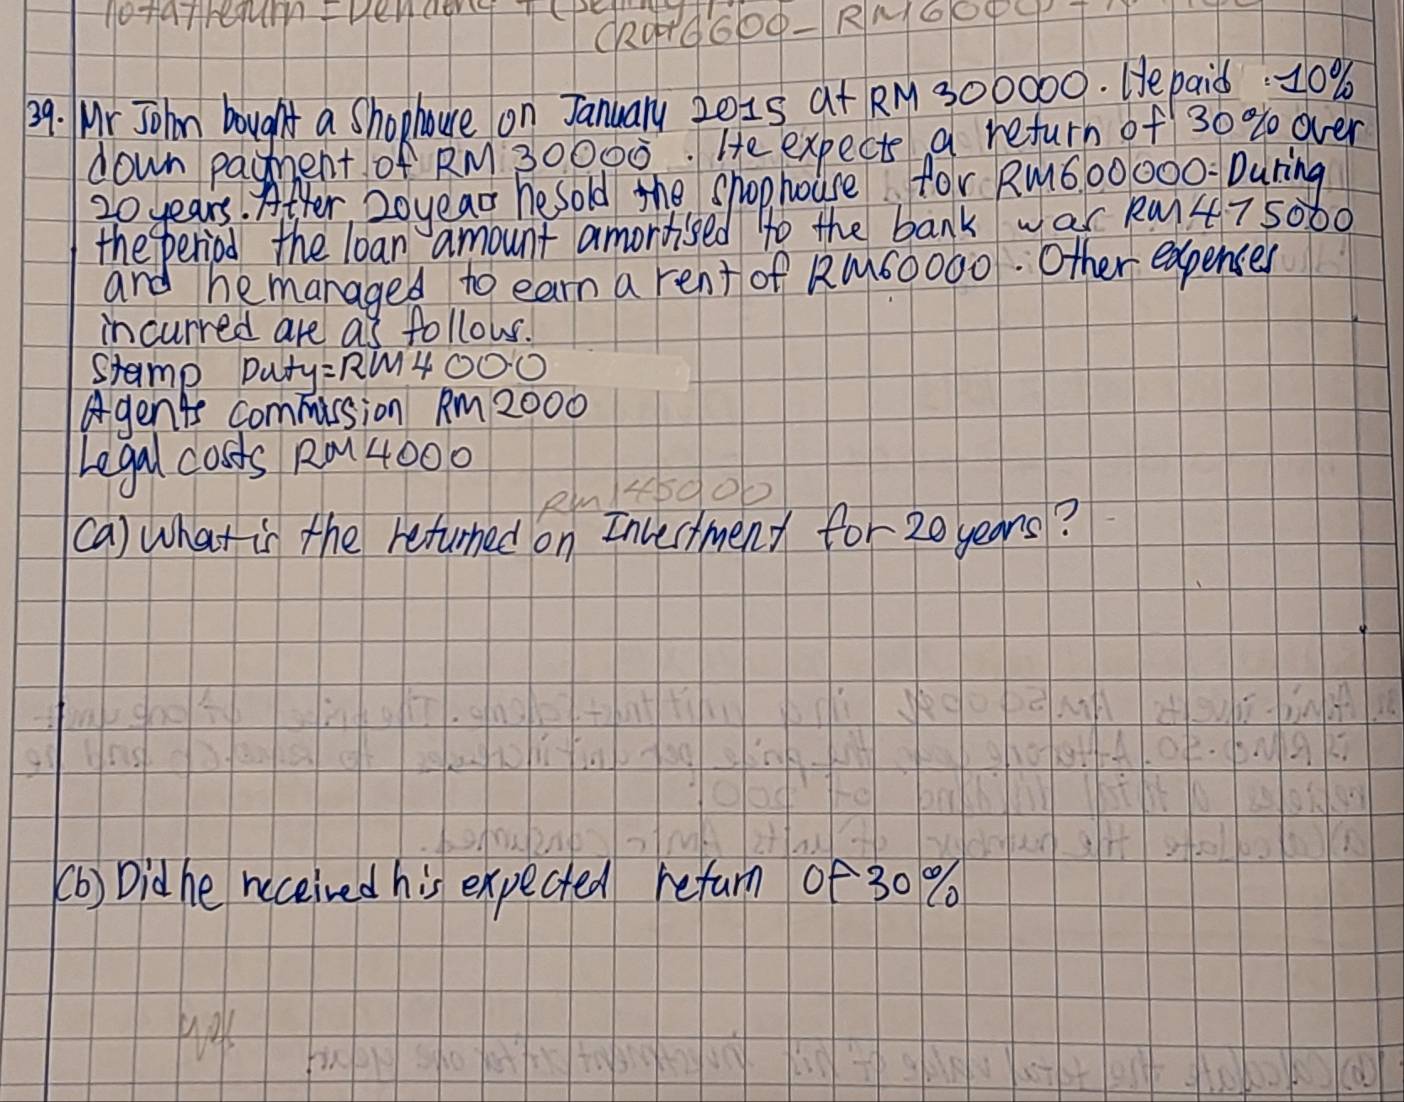 39. Mr John bought a Shophouse on January 2015 at RM 300000. He paid 10%
down payment of RM 30000. He expects a return of 30% over
20 years. After 20 years he sold the shophouse for RM600000. During
the period the loan amount amortised to the bank was RM475000
and he managed to earn a rent of RM60000. Other expenses
incurred are as follows.
Stamp Duty=RM4000
Agents commission RM2000
Legal costs RM4000
RM145000
(a) What is the returned on Investment for 20 years?
(b) Did he received his expected return of 30%
yes